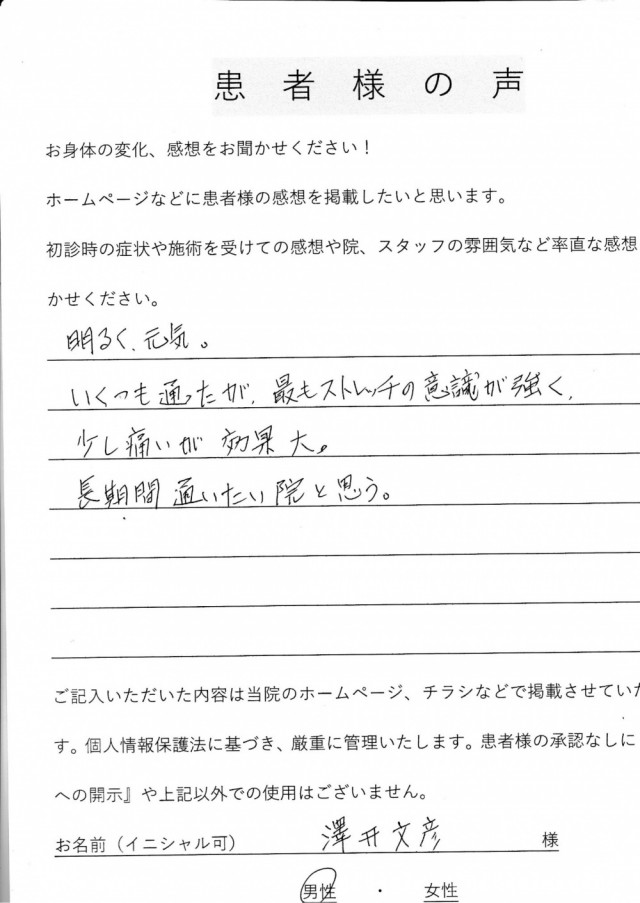 患者様の声
お身体の変化、感想をお聞かせください！
ホームページなどに患者様の感想を掲載したいと思います。
初診時の症状や施術を受けての感想や院、スタッフの雰囲気など率直な感想
かせください。
明るく、元気。
いくつも通ったが、最もストレッチの意識が強く、
少し痛いが効果大。
長期間通いたい院と思う。
ご記入いただいた内容は当院のホームページ、チラシなどで掲載させていた
す。個人情報保護法に基づき、厳重に管理いたします。患者様の承認なしに
への開示』や上記以外での使用はございません。
お名前（イニシャル可） 澤井文彦 様
男性 ・ 女性